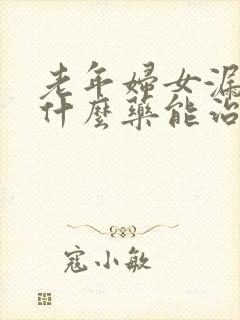 老年婦女漏
什麼藥能治
寇小敏